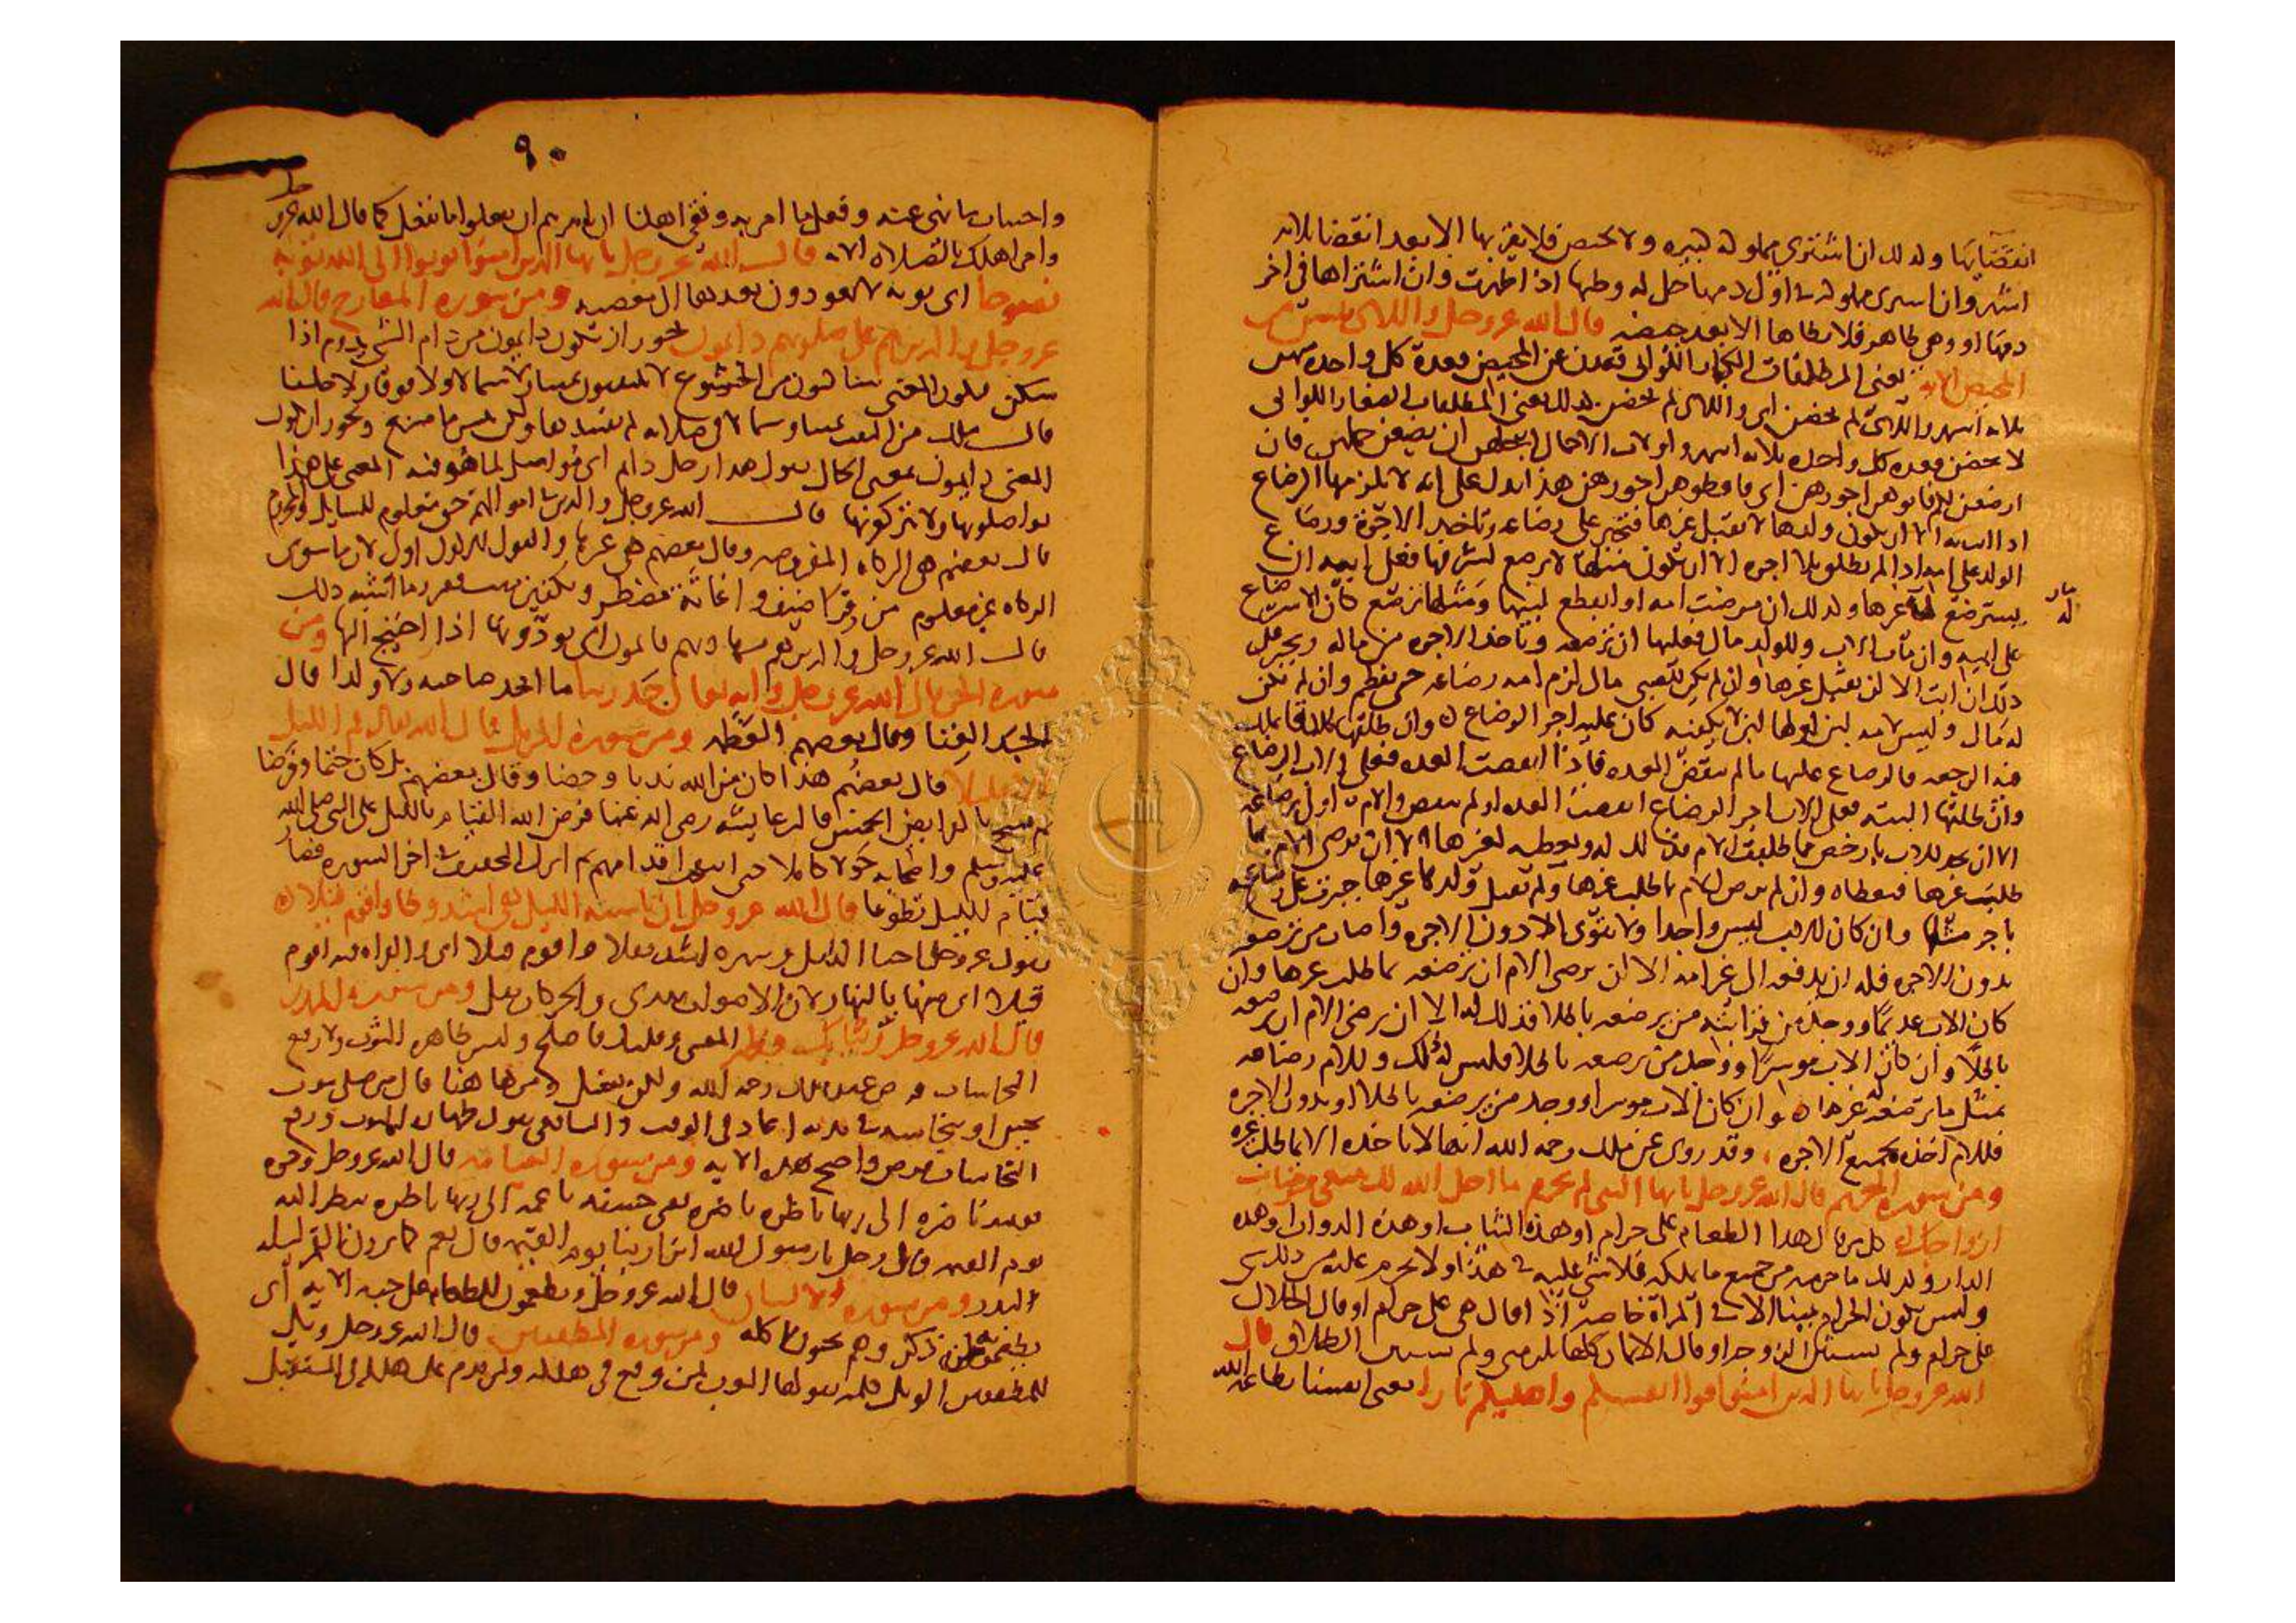 انقضايها ولذلك ان اشترى مملوكة كبيرة ولا تحيض فلا يقربها الا بعد انقضا ثلاثة
اشهر وان اشترى مملوكة في اول دمها حل له وطيها اذا طهرت وان اشتراها في اخر
دمها او وهي طاهر فلا يطاها الا بعد حيضة قال الله عز وجل واللائي يئسن من
المحيض الاية يعني المطلقات الكبار اللواتي قعدن عن المحيض فعدة كل واحدة منهن
ثلاثة اشهر واللائي لم يحضن اي واللائي لم يحضن كذلك يعني المطلقات الصغار اللواتي
لا يحضن فعدة كل واحدة ثلاثة اشهر واولات الاحمال اجلهن ان يضعن حملهن فان
ارضعن لكم فاتوهن اجورهن اي فاعطوهن اجورهن هذا يدل على انه لا يلزمها الرضاع
اذا ابت الا ان يكون ولدها لا يقبل غيرها فتجبر على رضاعه وتاخذ الاجرة ورضاع
الولد على ابدا اذا لم يطلق بلا اجرة الا ان تكون مثلها لا ترضع لشرفها فعلى ابيه ان
يسترضع له غيرها ولذلك ان مرضت امه او انقطع لبنها ومثلها ترضع كان الاسترضاع
على ابيه وان مات الاب وللولد مال فعليها ان ترضعه وتاخذ الاجرة من ماله وتجبر على
ذلك ان ابت الا ان يقبل غيرها وان لم يكن للصبي مال لزم امه رضاعه حتى يفطم وان لم يكن
له مال وليس لامه لبن او لها لبن لا يكفيه كان عليه اجر الرضاع وان طلقها طلاقا يملك
فيه الرجعة فالرضاع عليها ما لم تنقض العدة فاذا انقضت العدة فعلى الاب الرضاع
وان طلقها البتة فعلى الاب اجر الرضاع انقضت العدة او لم تنقض والام اولى برضاعه
الا ان يجد الاب بارخص مما طلبت الام فذلك له ويعطيه لغيرها الا ان ترضى الام بما
طلبت غيرها فتعطاه وان لم ترض الام بما طلب غيرها ولم يقبل الولد غيرها جبرت على رضاعه
باجر مثلها وان كان الاب ليس واجدا ولا يقوى الا دون الاجرة واصاب من ترضعه
بدون الاجرة فله ان يدفعه الى غير امه الا ان ترضى الام ان ترضعه بما طلب غيرها وان
كان الاب عديما ووجد من قرابته من يرضعه باطلا فذلك له الا ان ترضى الام ان ترضعه
باطلا وان كان الاب موسرا ووجد من يرضعه باطلا فليس له ذلك وللام رضاعه
بمثل ما ترضعه غيرها وان كان الاب موسرا ووجد من يرضعه باطلا او بدون الاجرة
فللام اخذه بجميع الاجرة وقد روي عن ملك رحمه الله انها لا تاخذه الا بما طلب غيره
ومن سورة التحريم قال الله عز وجل يا ايها النبي لم تحرم ما احل الله لك تبتغي مرضات
ازواجك كل من قال هذا الطعام علي حرام او هذه الثياب او هذه الدواب او هذه
الدار ولذلك ما حرمه من جميع ما يملكه فلا شي عليه في هذا ولا يحرم عليه من ذلك شي
وليس يكون الحرام يمينا الا في المراة خاصة اذا قال هي علي حرام او قال الحلال
علي حرام ولم يستثن الزوجة او قال الايمان كلها تلزمني ولم يستثن الطلاق قال
الله عز وجل يا ايها الذين امنوا قوا انفسكم واهليكم نارا يعني انفسنا بطاعة الله
٩٠
واجتناب ما نهى عنه وفعل ما امر به ونقي اهلنا ان نامرهم ان يفعلوا ما نفعل كما قال الله عز وجل
وامر اهلك بالصلاة الاية قال الله عز وجل يا ايها الذين امنوا توبوا الى الله توبة
نصوحا اي توبة لا يعودون بعدها الى معصية ومن سورة المعارج قال الله
عز وجل والذين هم على صلوتهم دايمون يجوز ان تكون دايمون من دام الشي يدوم اذا
سكن فيكون المعنى ساكنون من الخشوع لا يلتفتون يمينا ولا شمالا ولا فوقا ولا خلفا
قال ملك من التفت يمينا وشمالا في صلاته لم يفسدها ولكن بيس ما صنع ويجوز ان يكون
المعنى دايمون بمعنى الحال يقول هذا رجل دايم اي مواصل لما هو فيه المعنى على هذا
يواصلونها ولا يتركونها قال الله عز وجل والذين في اموالهم حق معلوم للسايل والمحروم
قال بعضهم هي الزكاة المفروضة وقال بعضهم هي غيرها والقول الاول اولى لان ما سوى
الزكاة غير معلوم من قرا ضيف واغاثة مضطر وتكفين ميت فقير وما اشبه ذلك
قال الله عز وجل والذين هم بشهاداتهم قايمون اي يودونها اذا احتيج اليها ومن
سورة الجن قال الله عز وجل وانه تعالى جد ربنا ما اتخذ صاحبة ولا ولدا قال
الجد الغنا وقال بعضهم العظمة ومن سورة المزمل قال الله تعالى قم الليل
الا قليلا قال بعضهم هذا كان من الله ندبا وحضا وقال بعضهم بل كان حتما وفرضا
ثم نسخ بالفرايض الخمس قالت عايشة رضي الله عنها فرض الله القيام بالليل على النبي صلى الله
عليه وسلم واصحابه حولا كاملا حتى انتفخت اقدامهم ثم انزل التخفيف في اخر السورة فصار
قيام الليل تطوعا قال الله عز وجل ان ناشئة الليل هي اشد وطا واقوم قيلا
يقول عز وجل احيا الليل وسهره اشد ثقلا واقوم قيلا اي والقراة فيه اقوم
قيلا اي منها بالنهار لان الاصوات تهدى والحركات تقل ومن سورة المدثر
قال الله عز وجل وثيابك فطهر المعنى وعملك فاصلح وليس طاهر الثوب ورفع
النجاسات فرض عند ملك رحمه الله ولكن يغسل من هاهنا قال من صلى بثوب
نجس او نجاسة في بدنه اعاد في الوقت والشافعي يقول طهارة الثوب ورفع
النجاسات فرض واحتج بهذه الاية ومن سورة القيامة قال الله عز وجل وجوه
يوميذ ناضرة الى ربها ناظرة ناضرة يعني حسنة ناعمة الى ربها ناظرة تنظر الله
يوم القيمة قال رجل يا رسول الله انرى ربنا يوم القيمة قال نعم كما ترون القمر ليلة
البدر ومن سورة الانسان قال الله عز وجل ويطعمون الطعام على حبه الاية اي
يطعمونه وهم يحبون اكله ومن سورة المطففين قال الله عز وجل ويل
للمطففين الويل كلمة يقولها العرب لمن وقع في هلكة ولمن يدم على هلكة في المستقبل